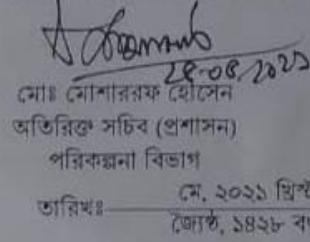 মোঃ মোশাররফ হোসেন
অতিরিক্ত সচিব (প্রশাসন)
পরিকল্পনা বিভাগ
তারিখঃ
মে, ২০২১
জ্যৈষ্ঠ, ১৪২৮